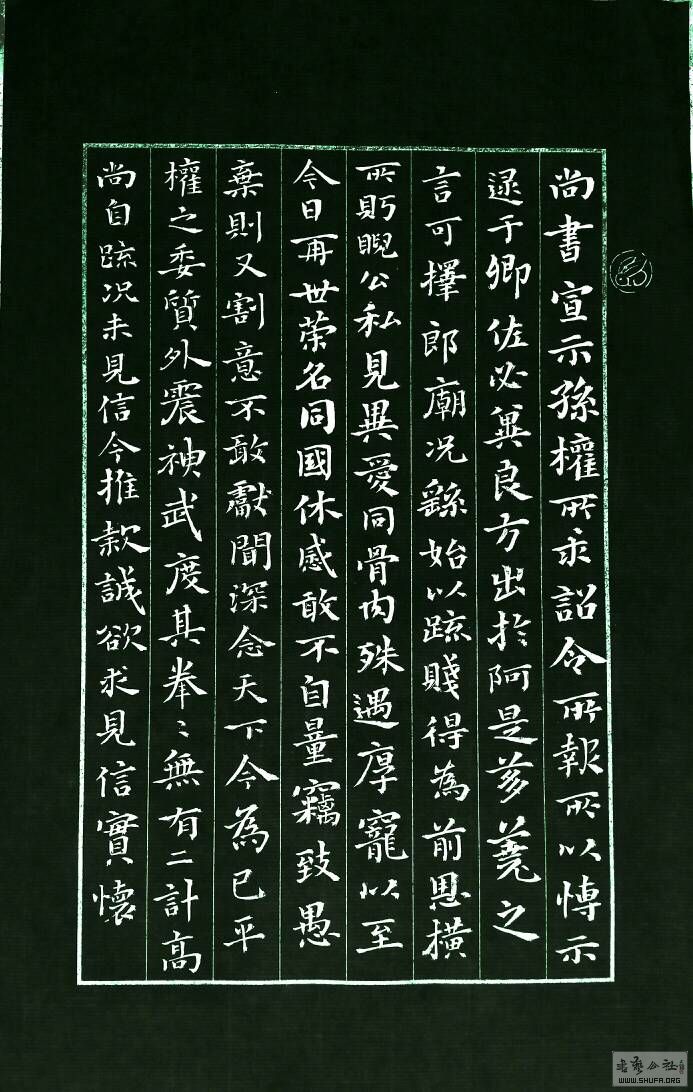 尚書宣示孫權所求詔令所報所以博示
逮于卿佐必冀良方出於阿是芻蕘之
言可擇郎廟況繇始以疏賤得為前恩橫
所眄睨公私見異愛同骨肉殊遇厚寵以至
今日再世荣名同國休慼敢不自量竊致愚
棄則又割意不敢獻聞深念天下今為已平
權之委質外震神武度其拳〻無有二計高
尚自疏況未見信今推款誠欲求見信實懷
書藝公社
WWW.SHUFA.ORG